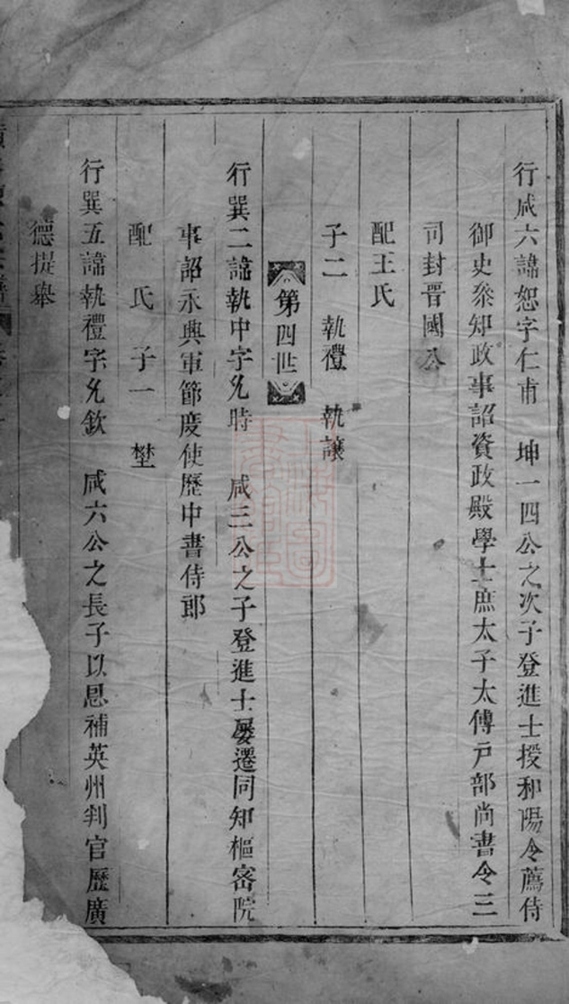 行咸六諱恕字仁甫 坤一四公之次子登進士授和陽令薦侍
御史叅知政事詔資政殿學士庶太子太傅戸部尚書令三
司封晉國公
配王氏
子二 執禮 執讓
第四世
行巽二諱執中字允時 咸三公之子登進士屡遷同知樞密院
事詔永興軍節度使歷中書侍郎
配 氏 子一 埜
行巽五諱執禮字允欽 咸六公之長子以恩補英州判官歷廣
德提舉